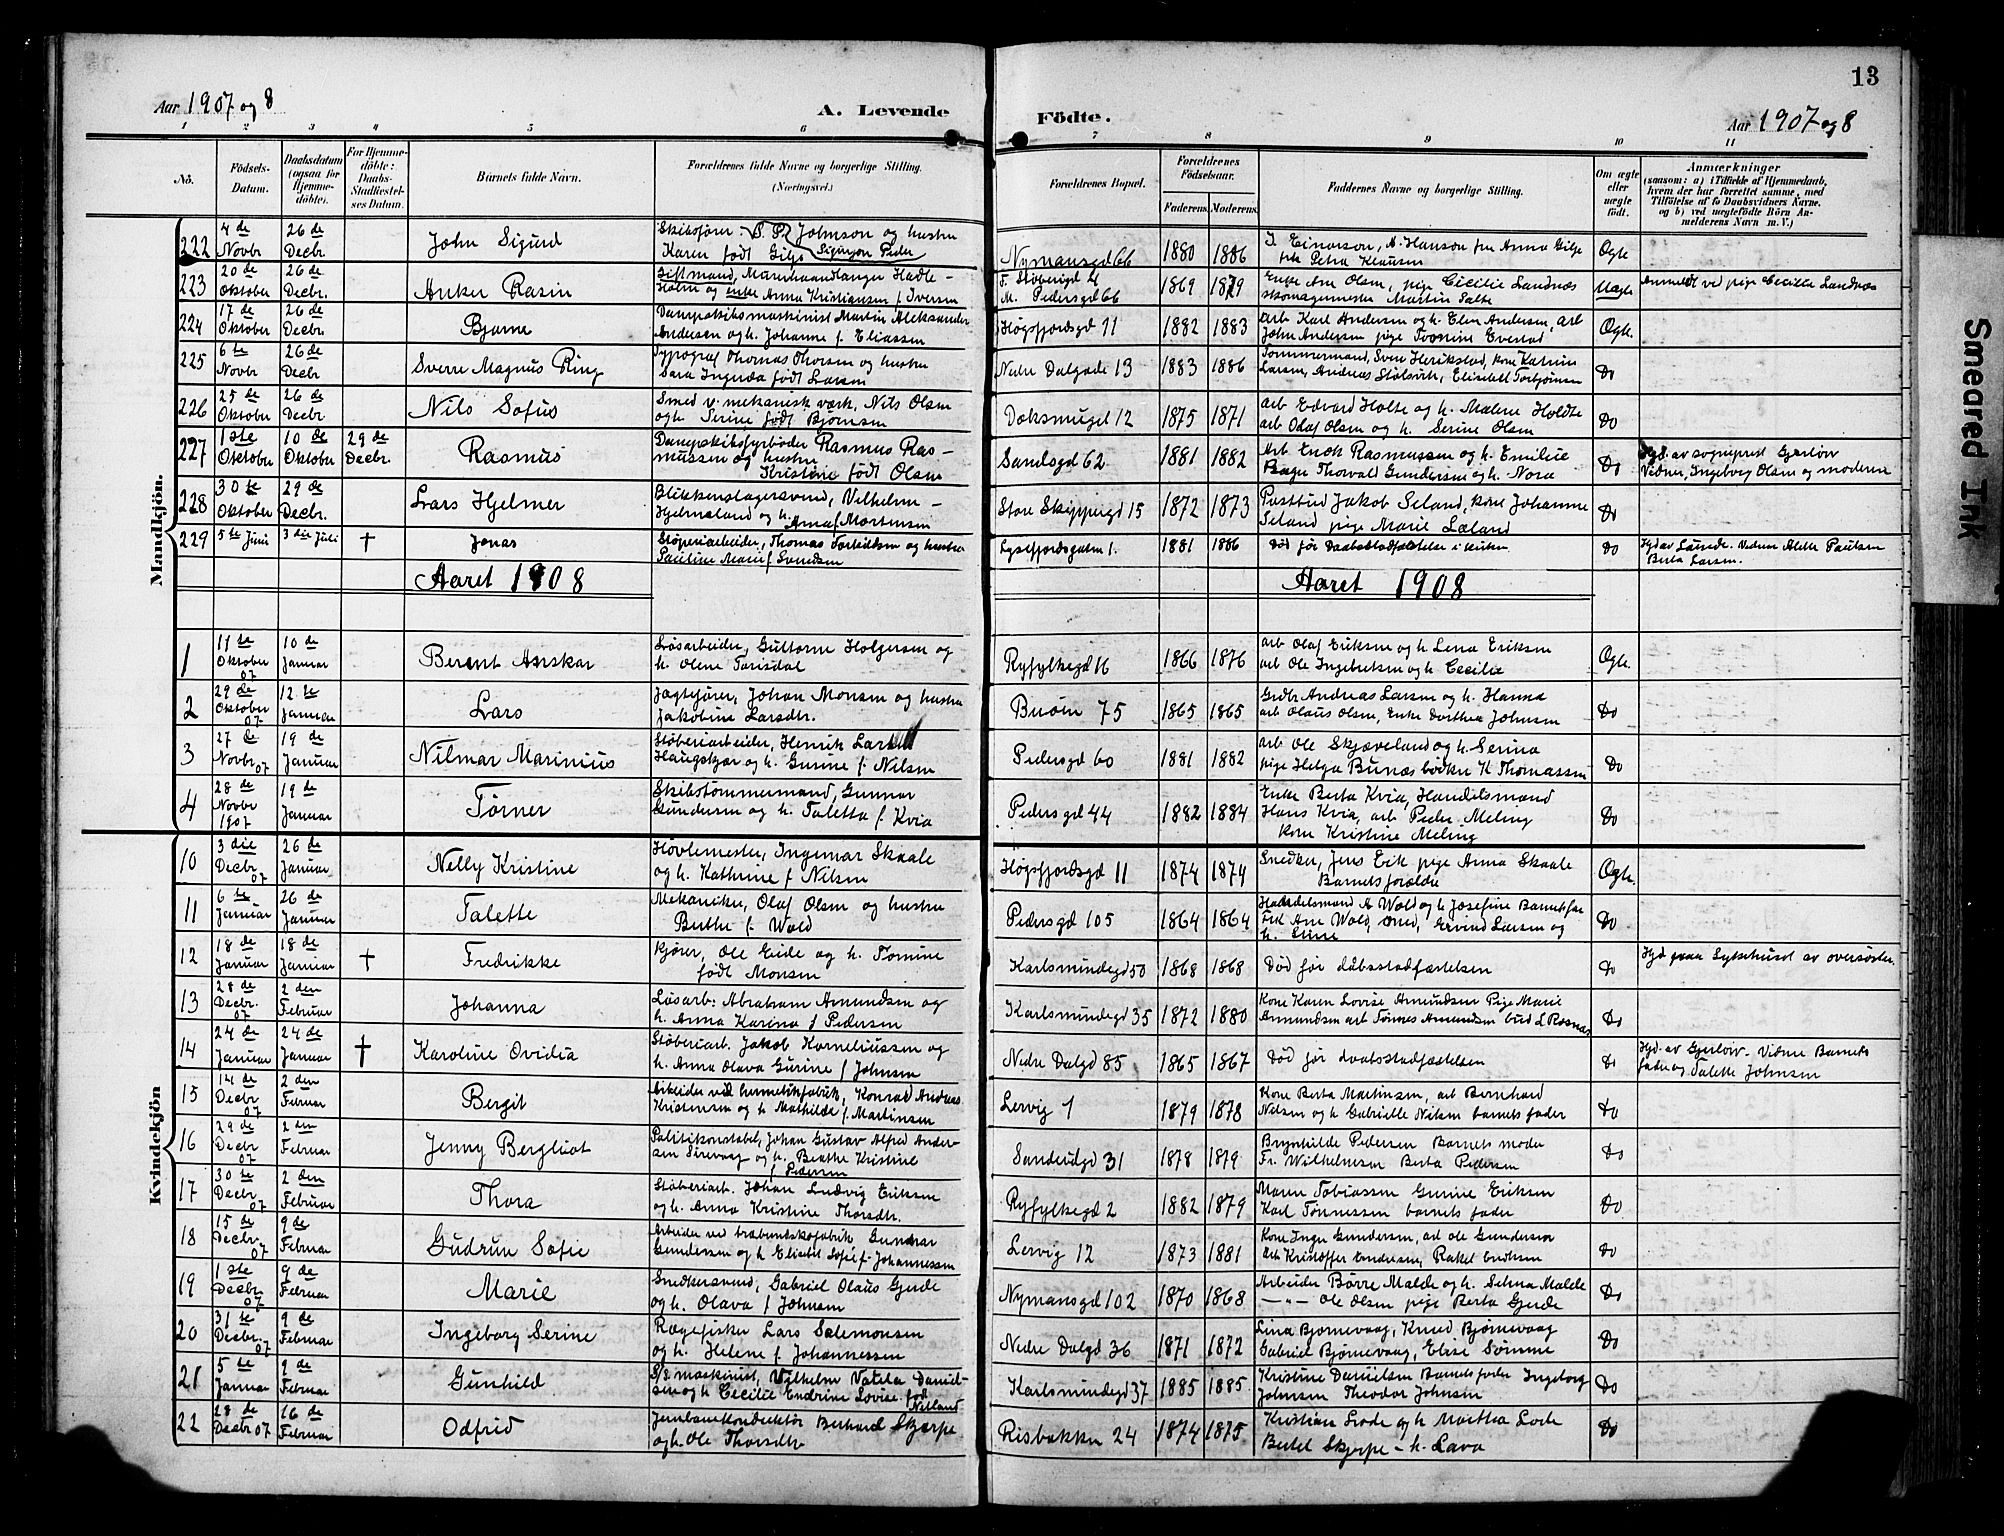 13
Aar 1907 og 8
A. Levende
Födte.
Aar 1907 og 8
1 2 3 4 5 6 7 8 9 10 11
Nö.
Födsels-
Datum.
Daabsdatum
(ogsaa for
Hjemme-
döbte).
For Hjemme-
döbte:
Daabs-
Stadfæstel-
ses Datum.
Barnets fulde Navn.
Forældrenes fulde Navne og borgerlige Stilling.
(Næringsvei.)
Forældrenes Bopæl.
Forældrenes
Födselsaar.
Faderens. Moderens.
Faddernes Navne og borgerlige Stilling.
Om ægte
eller
uægte
födt.
Anmærkninger
(saasom: a) i Tilfælde af Hjemmedaab,
hvem der har forrettet samme, med
Tilföielse af to Daabsvidners Navne.
og b) ved uægtefödte Börn An-
melderens Navn m. V.)
Mandkjön.
222 4de Novbr 26de Decbr John Sigurd
Skibsfører P. Johnson og hustru
Karen født Gilje Sigurjon Peder
Nymansgd 66 1880 1886
J. Einarson, A. Hanson fru Anna Gilje
frk Petra Klausen Ogte
223 20de Oktober 26de Decbr. Anker Rasin
Giftmand, Murerhaandlanger Hadle
Holm og enke Anna Kristiansen f Iversen
F. Støberigd 4
M. Pedersgd 66 1869 1879
Enke Ane Olsen, pige Cecilie Landnæs
skomagermester Martin Salte Uægte
Anmeldt ved pige Cecilie Landnæs
224 17de Oktober 26de Decbr. Bjarne
Dampskibsmaskinist Martin Aleksander
Andersen og h. Johanne f. Eliassen
Høgsfjordsgd 11 1882 1883
Arb Karl Andersen og h. Elen Andersen, arb
John Andersen pige Tomine Evestad Ogte.
225 6te Novbr 26de Decbr Sverre Magnus Ring
Typograf Thomas Thorsen og hustru
Sara Ingerda født Larsen
Nedre Dalgade 13 1883 1886
Tømmermand, Sven Henikstad, kone Katrine
Larsen, Andreas Stølsvik, Elisabett Torbjørnsen Do
226 25de Oktober 26de Decbr Nils Sofus
Smed v. mekanisk værk, Nils Olsen
og h. Serine født Bjørnsen
Doksmuget 12 1875 1871
arb Edvard Holte og h. Malene Holdte
arb Olaf Olsen og h. Serine Olsen Do
227 1ste Oktober 10de Oktober 29de Decbr. Rasmus
Dampskibsfyrbøder Rasmus Ras-
mussen og hustru
Kristine født Olsen
Sandsgd 62 1881 1882
Arb. Endr Rasmussen og h. Emilie
Bager Thorvald Gundersen og h. Nora Do
Hjd. av sogneprest Gjerløw
Vidner, Ingeborg Olsen og moderen
228 30te Oktober 29de Decbr. Lars Hjelmer
Blikkenslagersvend, Vilhelm
Hjelmeland og h. Anna f Mortensen
Store Skippergd 15 1872 1873
Postbud Jakob Seland, kone Johanne
Seland pige Marie Læland Do
229 5te Juni 3die Juli † Jonas
Støperiarbeider, Thomas Torkildsen og hustru
Pauline Marie f Svendsen
Lysefjordsgaten 1. 1881 1886
Død før Daabsstadfæstelse i kirken Do
Hjd av Lunde. Vidner Alette Paulsen
Berta Larsen.
Aaret 1908
Aaret 1908
1 11te Oktober 07 10de Januar Berent Anskar
Løsarbeider, Guttorm Holgersen og
h. Olene Torisdal
Ryfylkegd 16 1866 1876
arb Olaf Eriksen og h Lena Eriksen
arb Ole Ingebretsen og h Cecilie Ogte.
2 29de Oktober 07 12te Januar Lars
Jagtefører, Johan Monsen og hustru
Jakobine Larsdtr.
Buøen 75 1865 1865
Grdbr Andreas Larsen og h. Hanna
arb Olaus Olsen, Enke Dorthea Johnsen Do
3 27de Novbr 07 19de Januar Nilmar Marinius
Støberiarbeider, Henrik Lars
Haugskjær og h. Gurine f. Nilsen
Pedersgd 60 1881 1882
arb. Ole Skjæveland og h. Serina
pige Helga Bunæs bødker K Thomassen Do
4 28de Novbr 1907 19de Januar Tørner
Skibstømmermand, Gunnar
Gundersen og h. Taletta f. Kvia
Pedersgd 44 1882 1884
Enke Berta Kvia, Handelsmand
Hans Kvia, arb Peder Meling
kone Kristine Meling Do
Kvindekjön
10 3die Decbr 07 26de Januar Nelly Kristine
Høvlemester, Ingemar Skaale
og h. Kathrine f Nilsen
Høgsfjordsgd 11 1874 1874
Snedker, Jens Eik pige Anna Skaale
Barnets forældre Ogte.
11 6te Januar 26de Januar Talette
Mekaniker, Olaf Olsen og hustru
Berthe f. Wold
Pedersgd 105 1864 1864
Handelsmand A Wold og h Josefine Barnets far
Frk Ane Wold, smed, Eivind Larsen og
h. Stine Do
12 18de Januar 18de Januar † Fredrikke
Kjører, Ole Eide og h. Tomine
født Monsen
Karlsmindegd 50 1868 1868
Død før dåbsstadfæstelsen Do
Hjd paa Sykehuset av oversøster
13 28de Decbr. 07 2den Februar Johanna
Løsarb: Abraham Amundsen og
h. Anna Karina f Pedersen
Karlsmindegd 35 1872 1880
Kone Karen Lovise Amundsen Pige Marie
Ammundsen arb Tønnes Amundsen bud L Rosnæs Do
14 24de Januar 24de Januar † Karoline Ovidia
Støberiarb. Jakob Korneliussen og
h. Anna Olava Gurine f Johnsen
Nedre Dalgd 85 1865 1867
Død før daabsstadfæstelsen Do
Hjd. av Gjerløw. Vidne Barnets
fader og Talette Johnsen
15 14de Decbr 07 2den Februar Bergit
Arbeider ved hermetikfabrik, Konrad Andreas
Kristensen og h Mathilde f. Martinsen
Lervig 1 1879 1878
Kone Berta Martinsen, arb Bernhard
Nilsen og h Gabrielle Nilsen barnets fader Do
16 29de Decbr 07 2den Februar Jenny Bergliot
Politikonstabel, Johan Gustav Alfred Ander-
sen Sirevaag og h. Berthe Kristine
f Pedersen
Sandeidgd 31 1878 1879
Brynhilde Pedersen Barnets moder
Fr. Wilhelmsen Berta Pedersen Do
17 30te Decbr 07 2den Februar Thora
Støberiarb. Johan Ludvig Eriksen
og h. Anna Kristine Thorsdtr.
Ryfylkegd 2 1882 1879
Maren Tobiassen Gurine Eriksen
Karl Tønnessen barnets fader Do
18 15de Decbr. 07 9de Februar Gudrun Sofie
Arbeider ved træbundskofabrik Gunnar
Gundersen og h Elisabet Sofie f. Johannessen
Lervig 12 1873 1881
Kone Inger Gundersen, arb Ole Gunderson
arb Kristoffer Endresen, Rakel Endresen Do
19 1ste Decbr 07 9de Februar Marie
Snedkersvend, Gabriel Olaus Gjerde
og h. Olava f Johnsen
Nymansgd 102 1870 1868
Arbeider Børre Malde og h. Selma Malde
—"— Ole Olsen pige Berta Gjerde Do
20 31te Decbr. 07 9de Februar Ingeborg Serine
Rægefisker Lars Salemonsen
og h. Helene f Johannessen
Nedre Dalgd 36 1871 1872
Lina Bjørnevaag, Knud Bjørnevaag
Gabriel Bjørnevaag, Elise Sømme Do
21 5te Januar 9de Februar Gunhild
S/s maskinist, Vilhelm Vatela Daniel-
sen og h Cecilie Endrine Lovise født
Netland
Karlsmindegd 37 1885 1885
Kristine Danielsen Barnets fader Ingeborg
Johnsen Theodor Johnsen Do
22 28de Decbr 07 16de Februar Odfrid
Jernbanekonduktør Berhard Skjærpe
og h. Ole Thorsdtr
Risbakken 24 1874 1875
Kristian Lode og h Martha Lode
Bertel Skjerpe – h. Lava Do
Smeared Ink